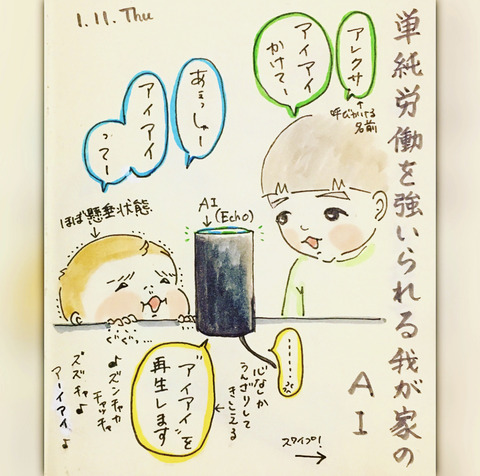 1.11. Thu
単純労働を強いられる我が家の
AI
アレクサ
↑
呼びかける
名前
アイアイ
かけてー
あぅっしゃー
アイアイ
ってー
ほぼ懸垂状態
AI
(Echo)
ぐぐ…
………
"アイアイ"を
再生します
心なしか
うんざりして
きこえる
♪ズンチャカ
チャッチャ
ズズチャ♪
アーイアイ♪
スワイプ!